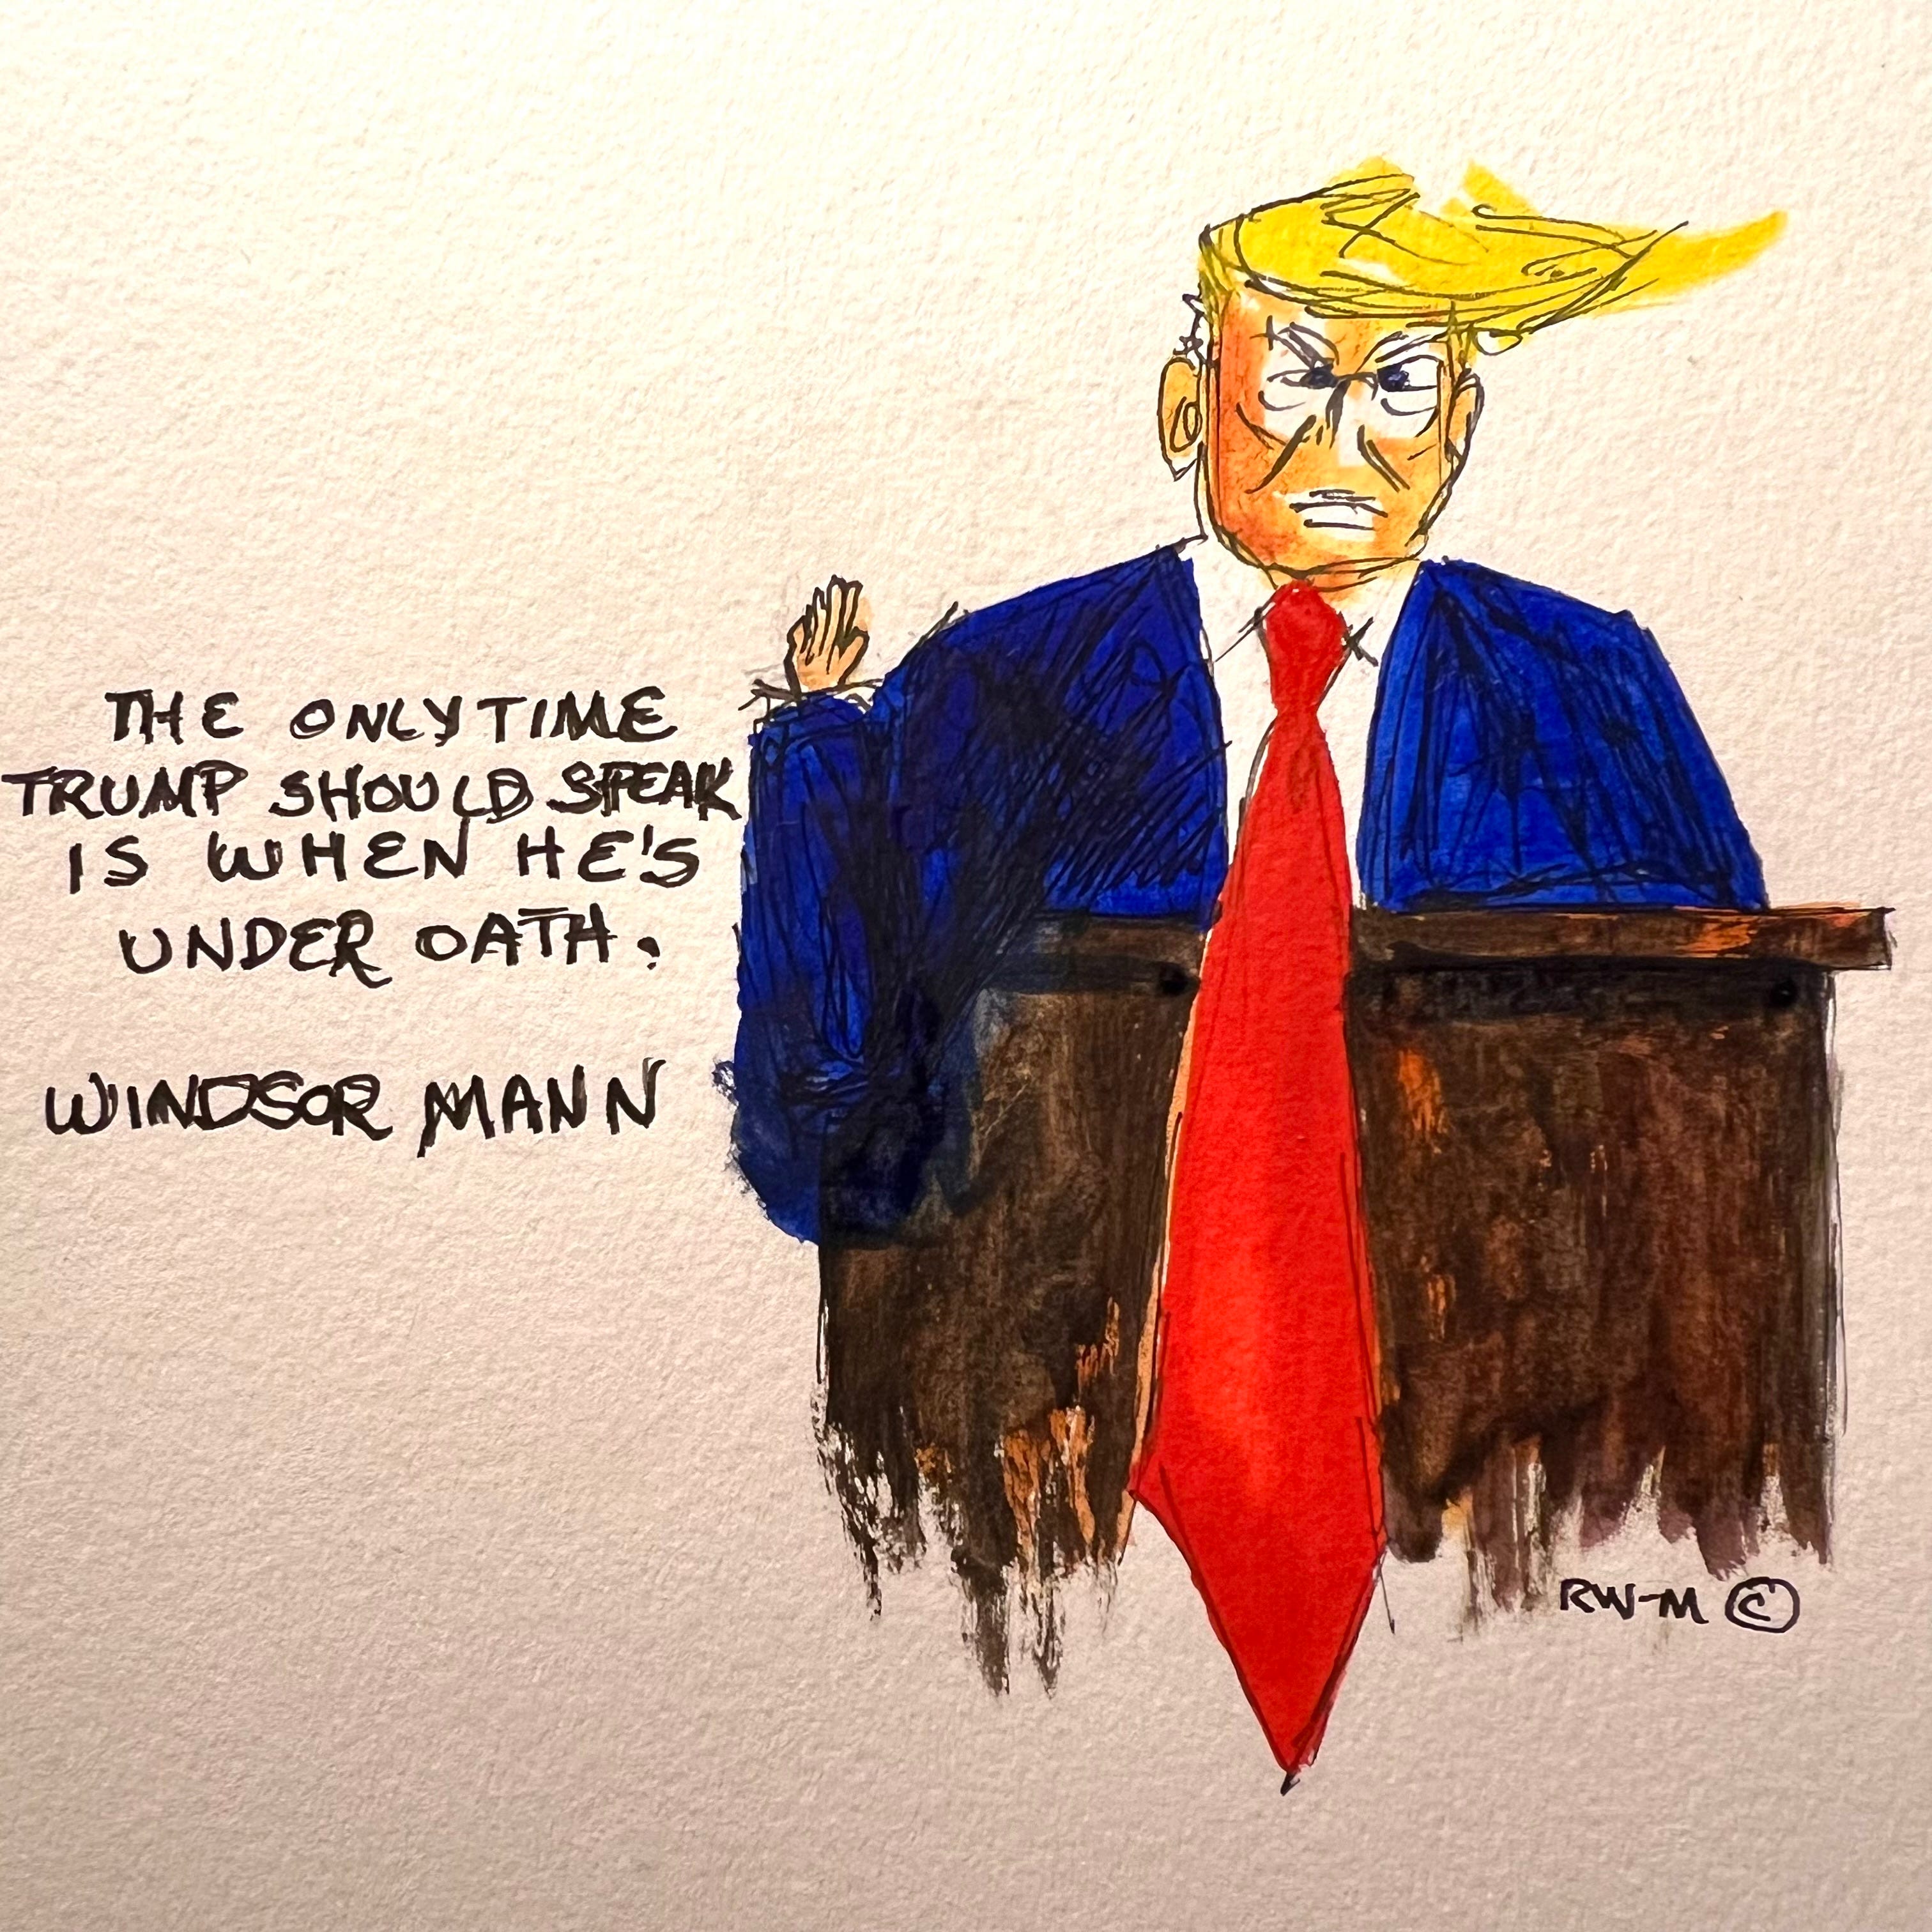 THE ONLY TIME
TRUMP SHOULD SPEAK
IS WHEN HE'S
UNDER OATH.
WINDSOR MANN
RW-M ©